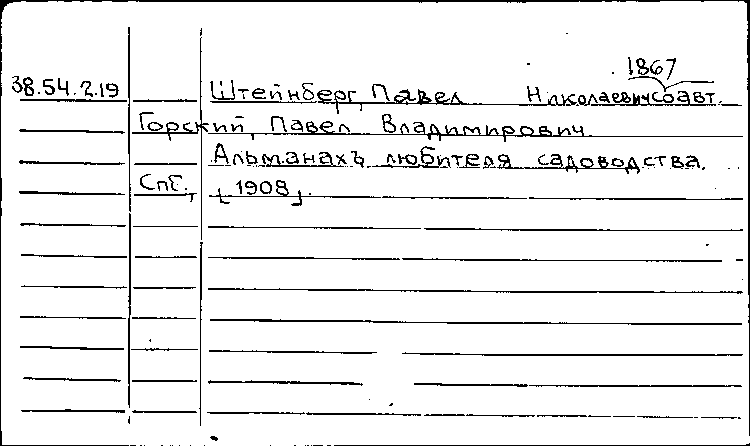 1867
38.54.2.19 Штейнберг, Павел Николаевич соавт.
Горский, Павел Владимирович.
Альманахъ любителя садоводства.
Спб., [1908].